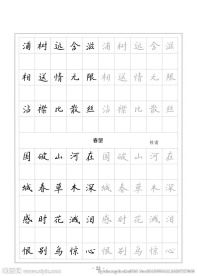 浦树远含滋 浦树远含滋
相送情无限 相送情无限
沾襟比散丝 沾襟比散丝
春望 杜甫
国破山河在 国破山河在
城春草木深 城春草木深
感时花溅泪 感时花溅泪
恨别鸟惊心 恨别鸟惊心